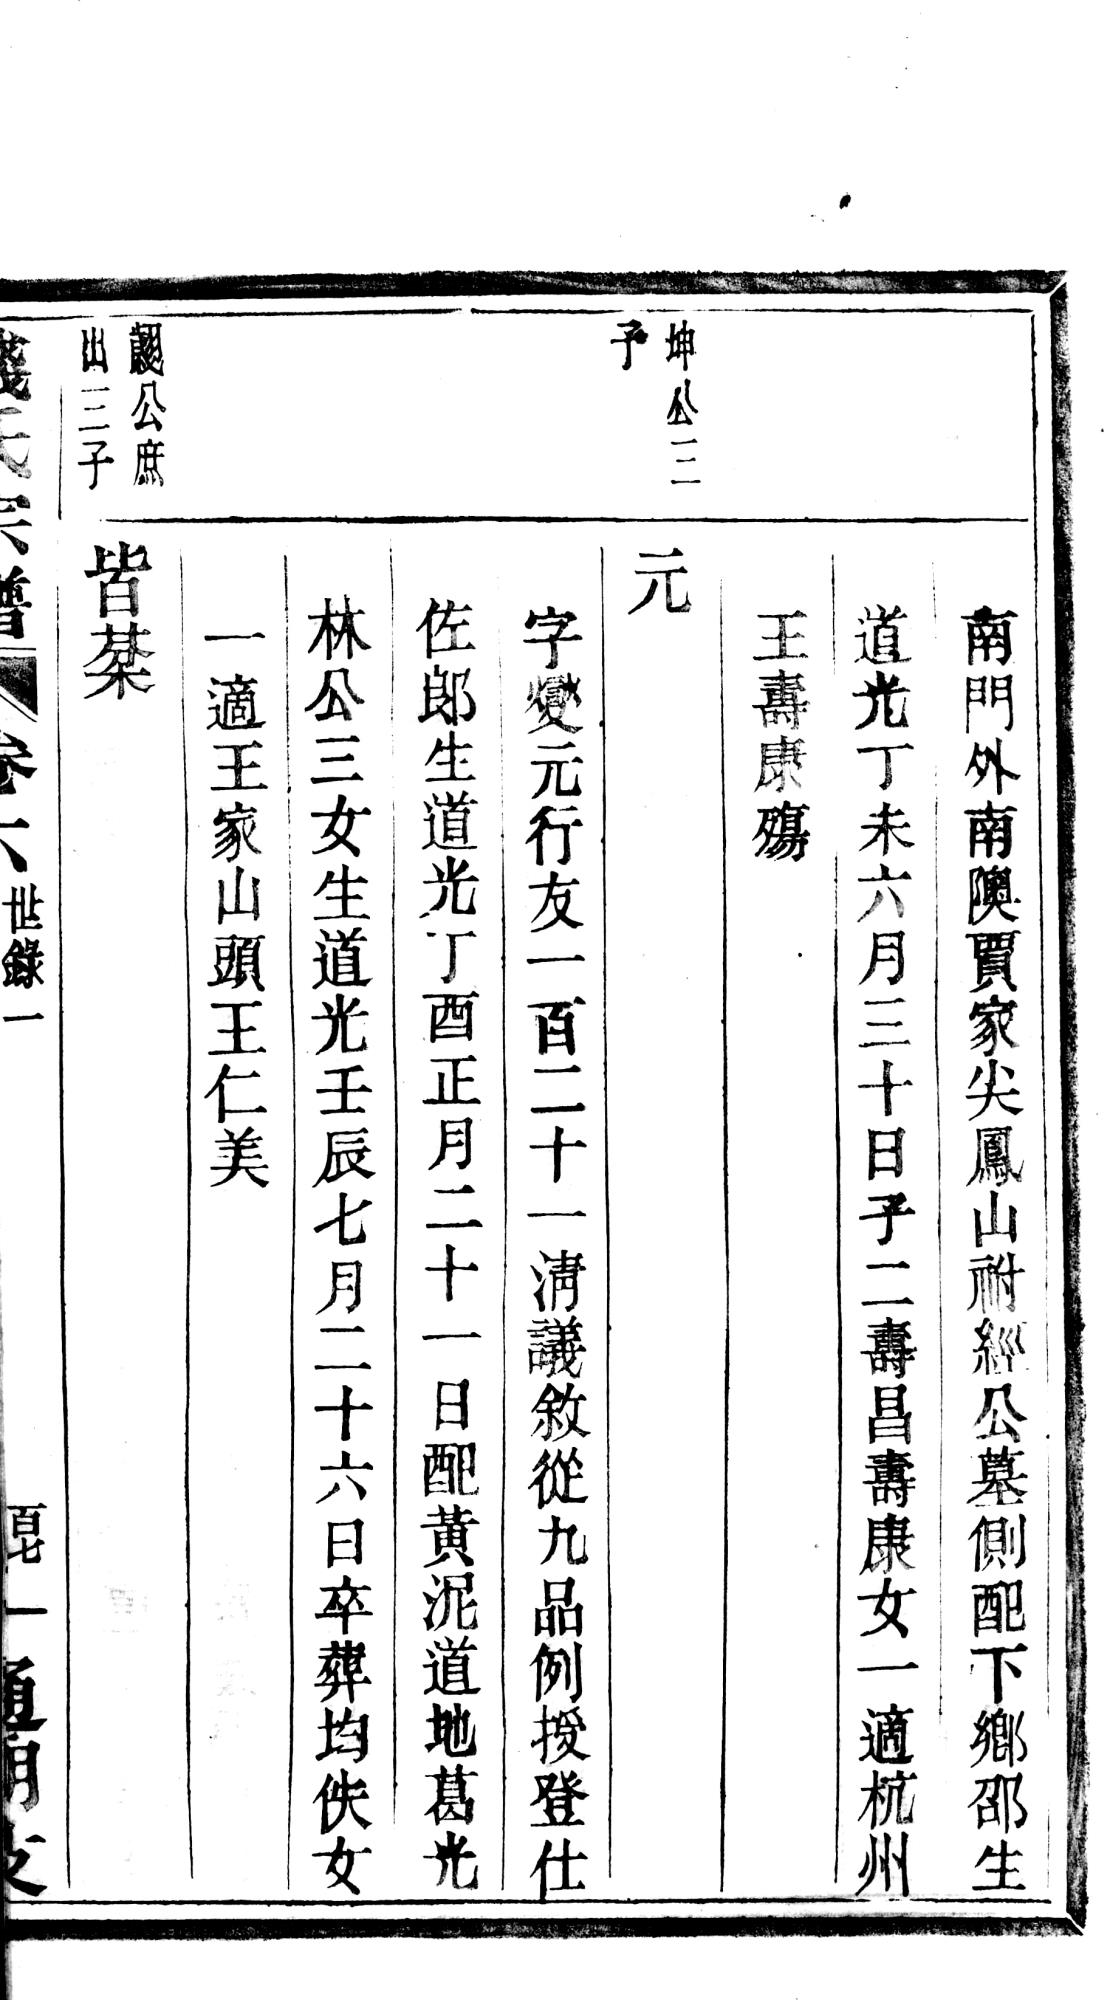 南門外南隩賈家尖鳳山祔經公墓側配下鄉邵生
道光丁未六月三十日子二壽昌壽康女一適杭州
王壽康殤
坤公三
子
元
字燮元行友一百二十一淸議敘從九品例授登仕
佐郎生道光丁酉正月二十一日配黃泥道地葛光
林公三女生道光壬辰七月二十六日卒葬均佚女
一適王家山頭王仁美
公庶
出三子
皆棻
錢氏宗譜
卷六
世錄一
百七
通明支